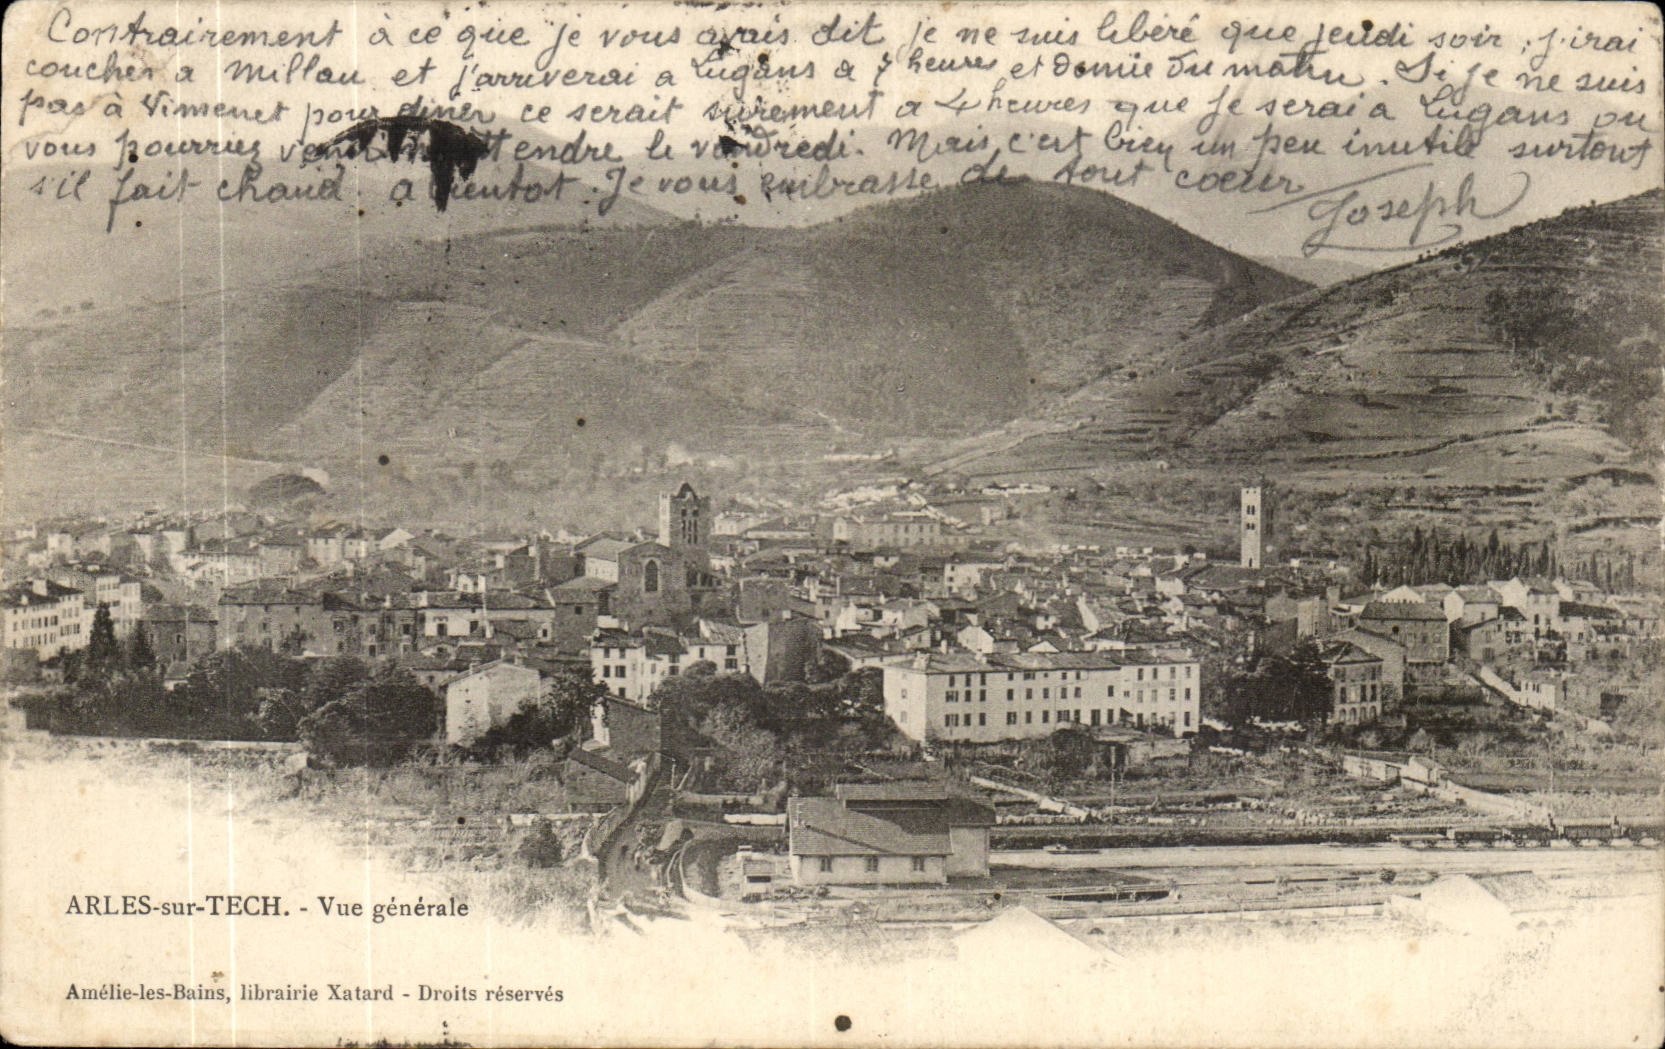 Contrairement à ce que je vous avais dit je ne suis libéré que jeudi soir, j'irai
coucher a Millau et j'arriverai a Lugans a 7 heures et demie du matin. Si je ne suis
pas à Vimenet pour diner ce serait surement a 4 heures que je serai a Lugans ou
vous pourriez venir m'attendre le vendredi. Mais c'est bien un peu inutile surtout
s'il fait chaud. a bientot. Je vous embrasse de tout coeur
Joseph
ARLES-sur-TECH. - Vue générale
Amélie-les-Bains, librairie Xatard - Droits réservés